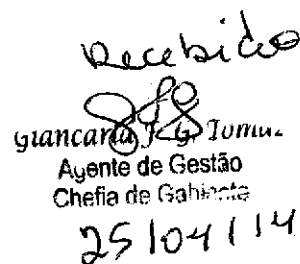 Recebido
Giancarla J. G. 
Agente de Gestão
Chefia de Gabinete
25/04/14